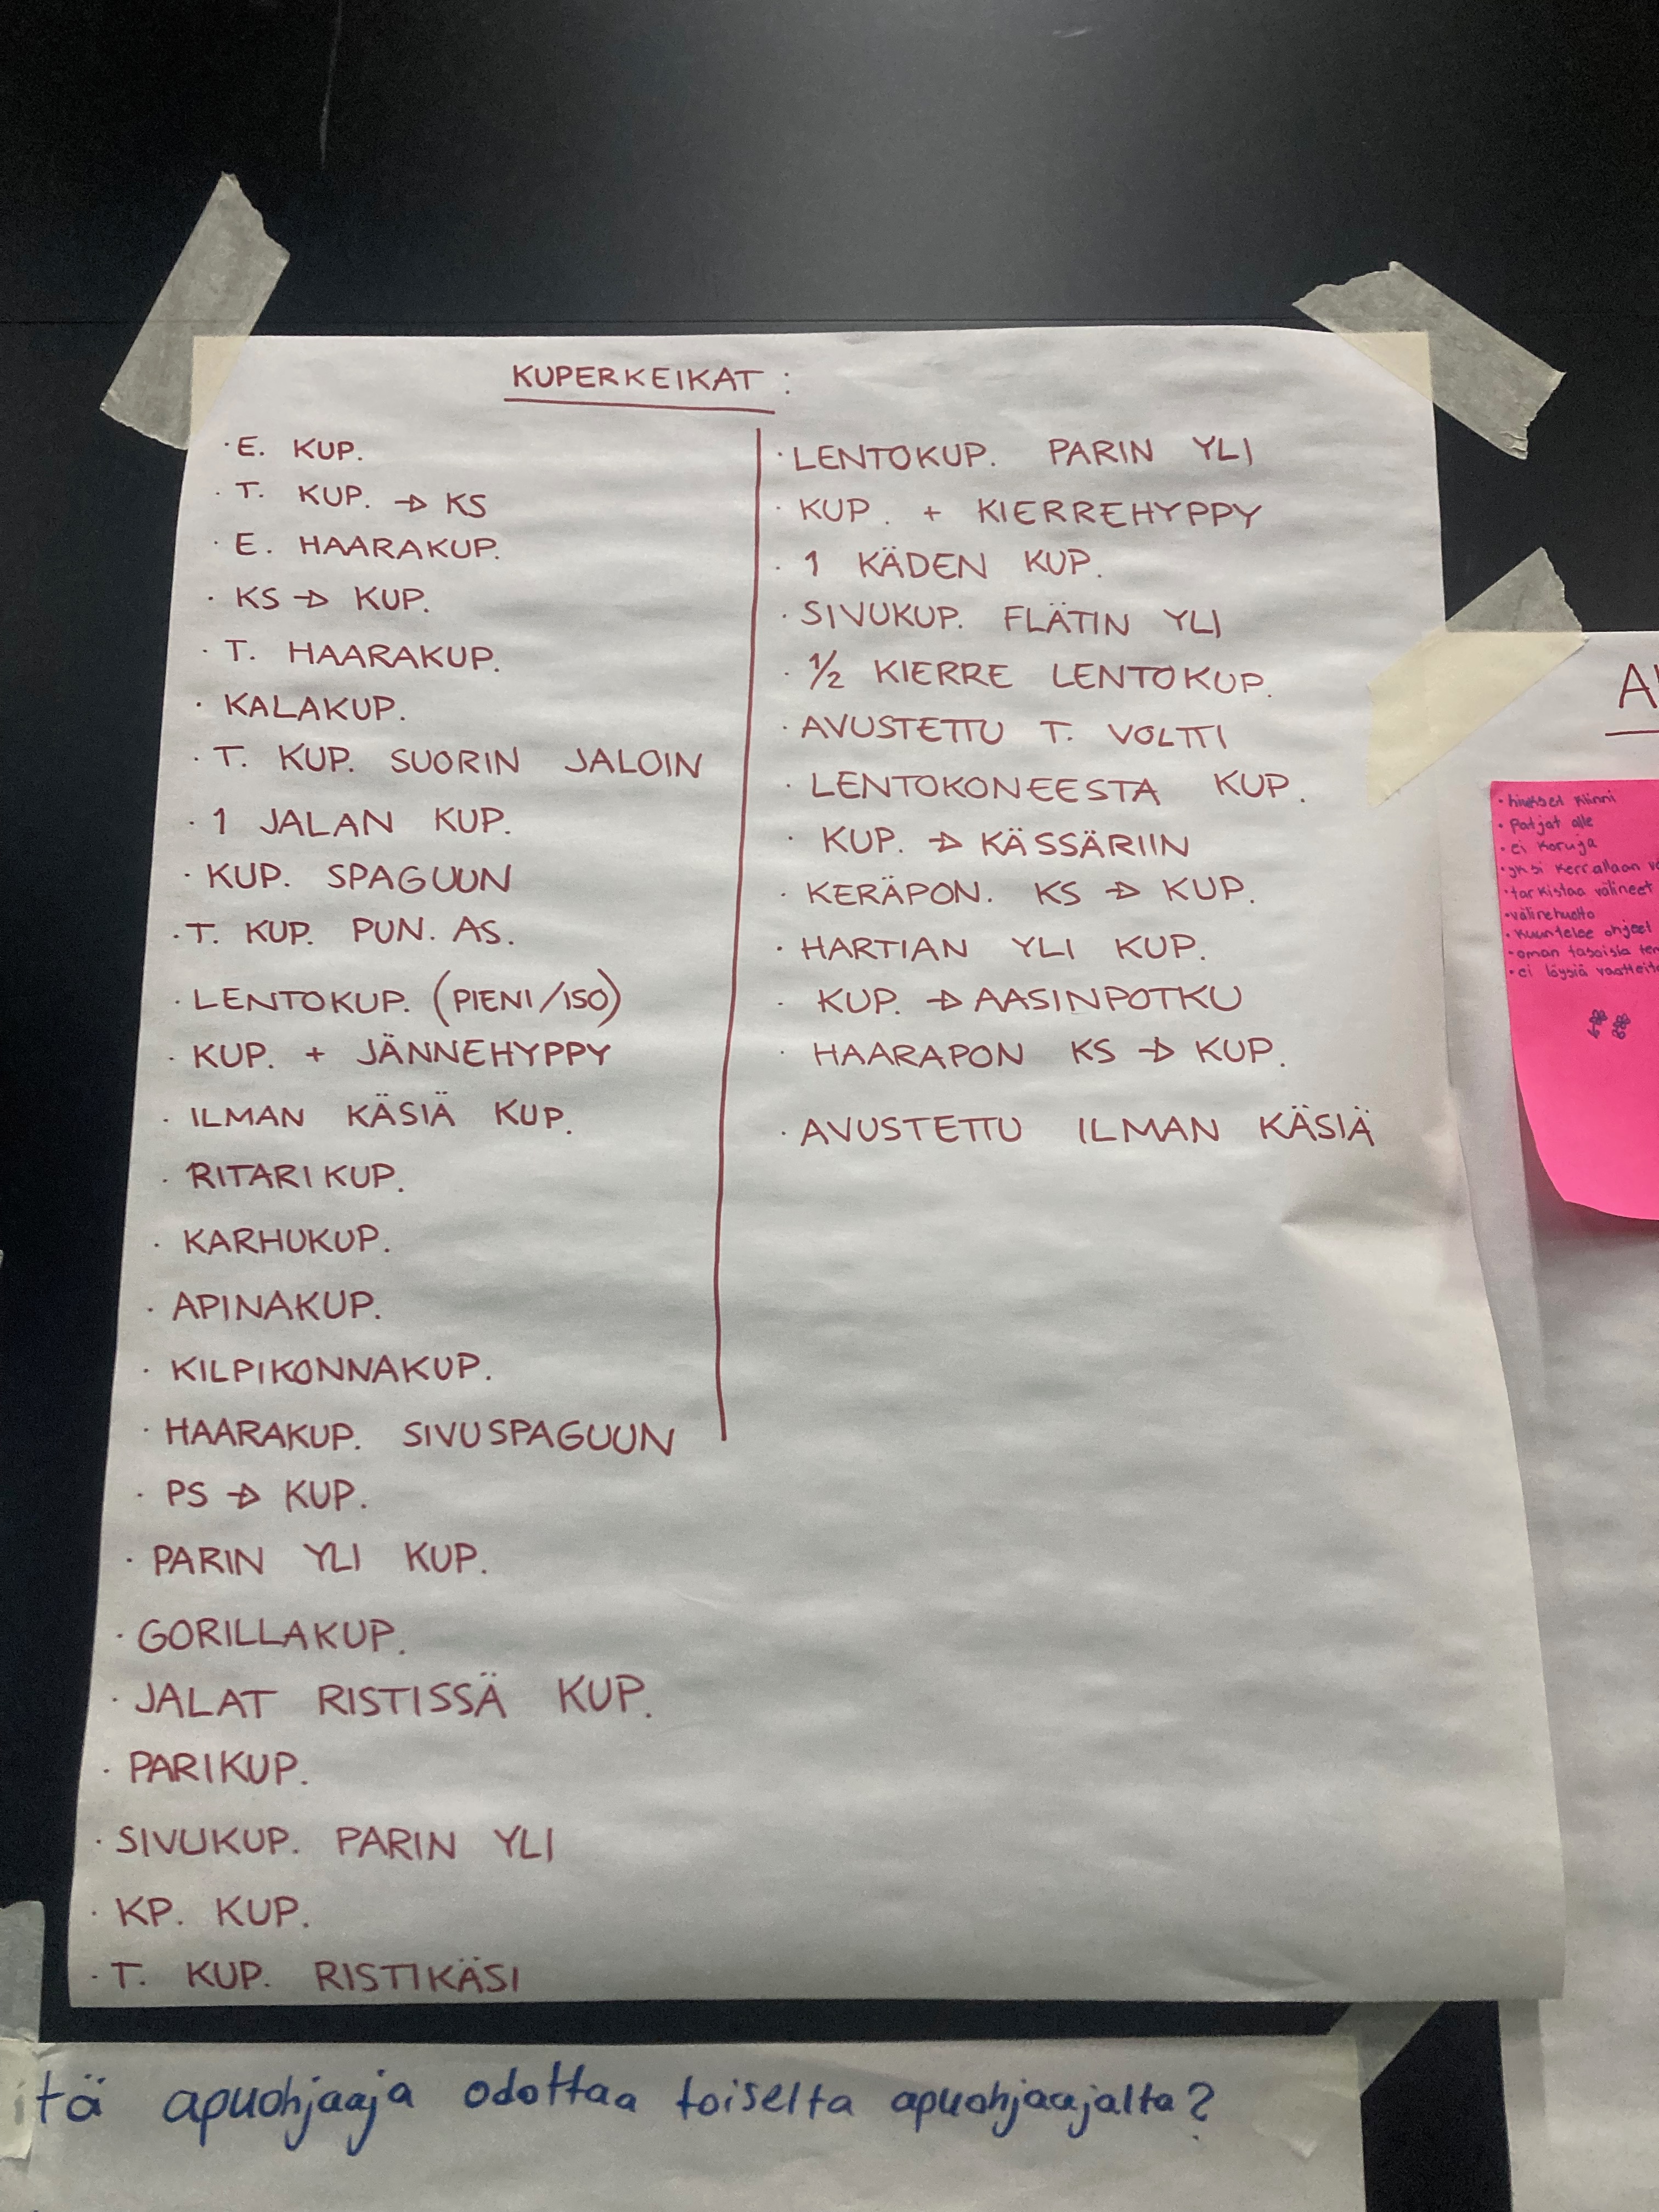 KUPERKEIKAT :
· E. KUP.
· T. KUP. → KS
· E. HAARAKUP.
· KS → KUP.
· T. HAARAKUP.
· KALAKUP.
· T. KUP. SUORIN JALOIN
· 1 JALAN KUP.
· KUP. SPAGUUN
· T. KUP. PUN. AS.
· LENTOKUP. (PIENI/ISO)
· KUP. + JÄNNEHYPPY
· ILMAN KÄSIÄ KUP.
· RITARIKUP.
· KARHUKUP.
· APINAKUP.
· KILPIKONNAKUP.
· HAARAKUP. SIVUSPAGUUN
· PS → KUP.
· PARIN YLI KUP.
· GORILLAKUP.
· JALAT RISTISSÄ KUP.
· PARIKUP.
· SIVUKUP. PARIN YLI
· KP. KUP.
· T. KUP. RISTIKÄSI
· LENTOKUP. PARIN YLI
· KUP. + KIERREHYPPY
· 1 KÄDEN KUP.
· SIVUKUP. FLÄTIN YLI
· 1/2 KIERRE LENTOKUP.
· AVUSTETTU T. VOLTTI
· LENTOKONEESTA KUP.
· KUP. → KÄSSÄRIIN
· KERÄPON. KS → KUP.
· HARTIAN YLI KUP.
· KUP. → AASINPOTKU
· HAARAPON KS → KUP.
· AVUSTETTU ILMAN KÄSIÄ
· hiukset kiinni
· Patjat alle
· ei koruja
· yksi kerrallaan
· tarkistaa välineet
· välinehuolto
· kuuntelee ohjeet
· oman tasoisia
· ei löysiä
itä apuohjaaja odottaa toiselta apuohjaajalta?